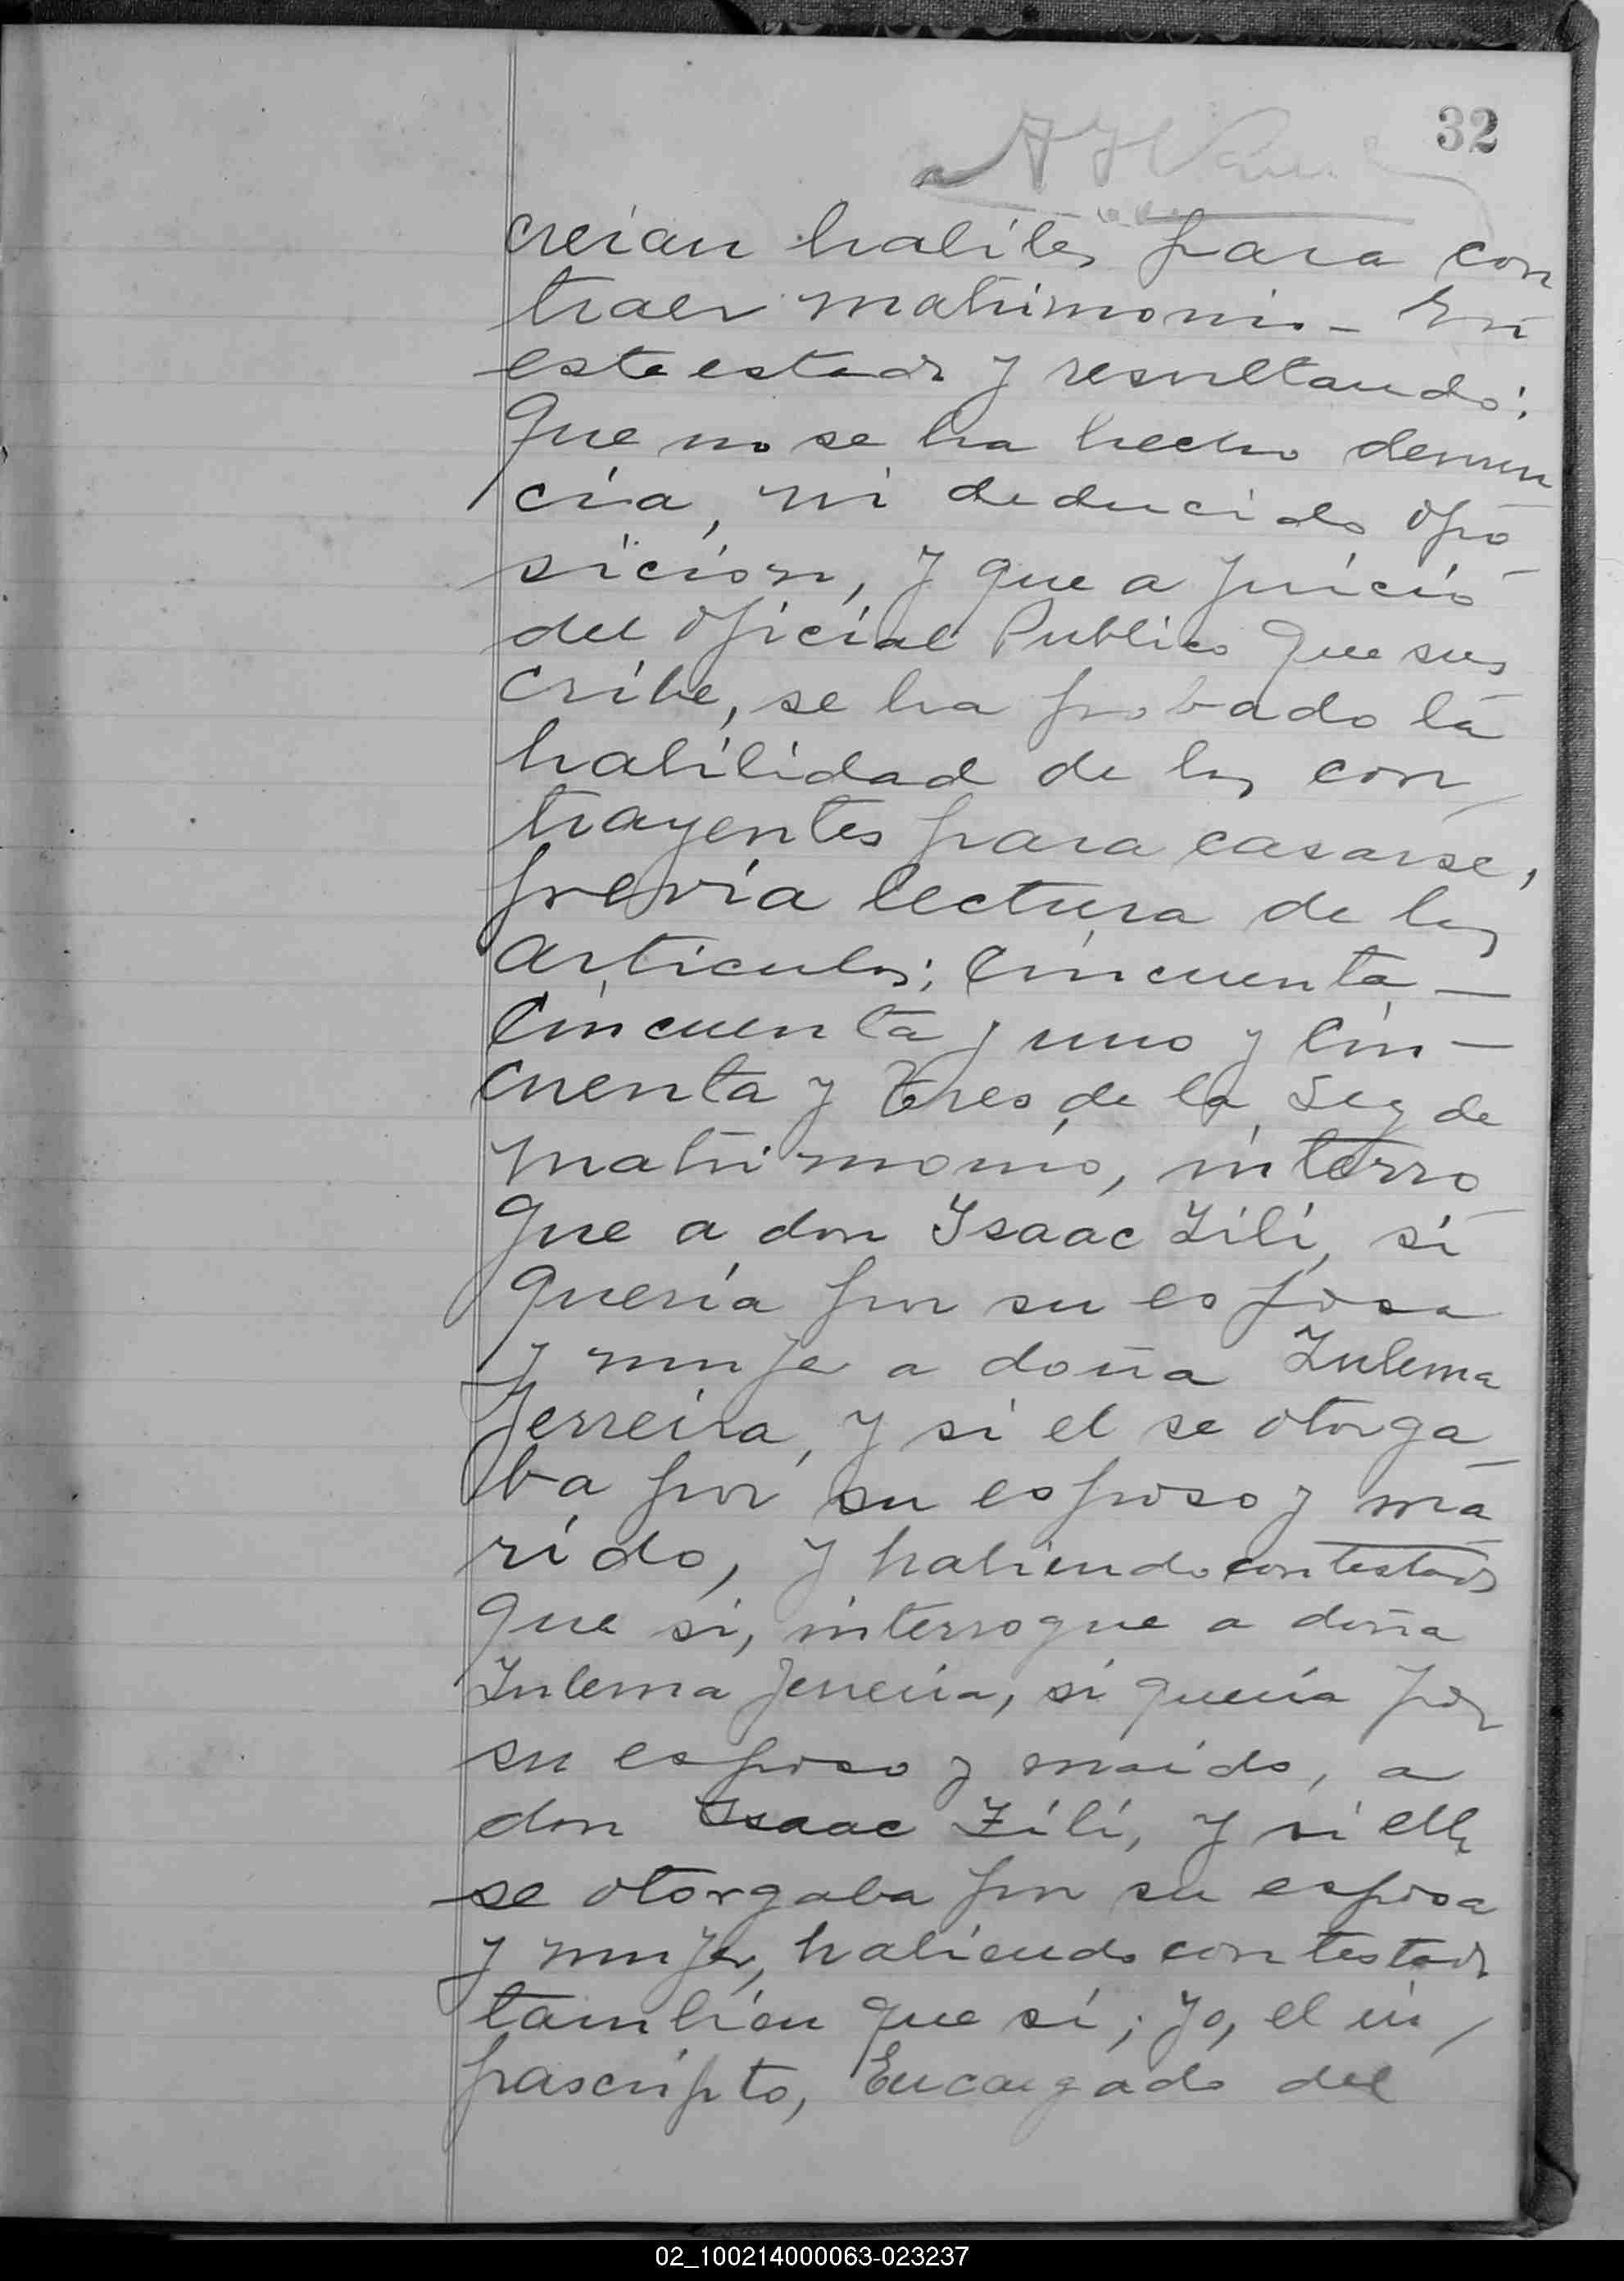 32
creian habiles para con
traer matrimonio - En
este estado y resultando:
Que no se ha hecho denun
cia, ni deducido opo
sición, y que a juicio
del Oficial Publico que sus
cribe, se ha probado la
habilidad de los con
trayentes para casarse,
previa lectura de los
articulos; Cincuenta -
Cincuenta y uno y Cin -
cuenta y tres de la Ley de
matrimonio, interro
gue a don Isaac Zili, si
queria por su esposa
y mujer a doña Zulema
Ferreira, y si el se otorga
ba por su esposo y ma
rido, y habiendo contestado
que si, interrogue a doña
Zulema Ferreira, si queria por
su esposo y marido, a
don Isaac Zili, y si ella
se otorgaba por su esposa
y mujer, habiendo contestado
tambien que si; yo, el in
frascripto, Encargado del
02_100214000063-023237